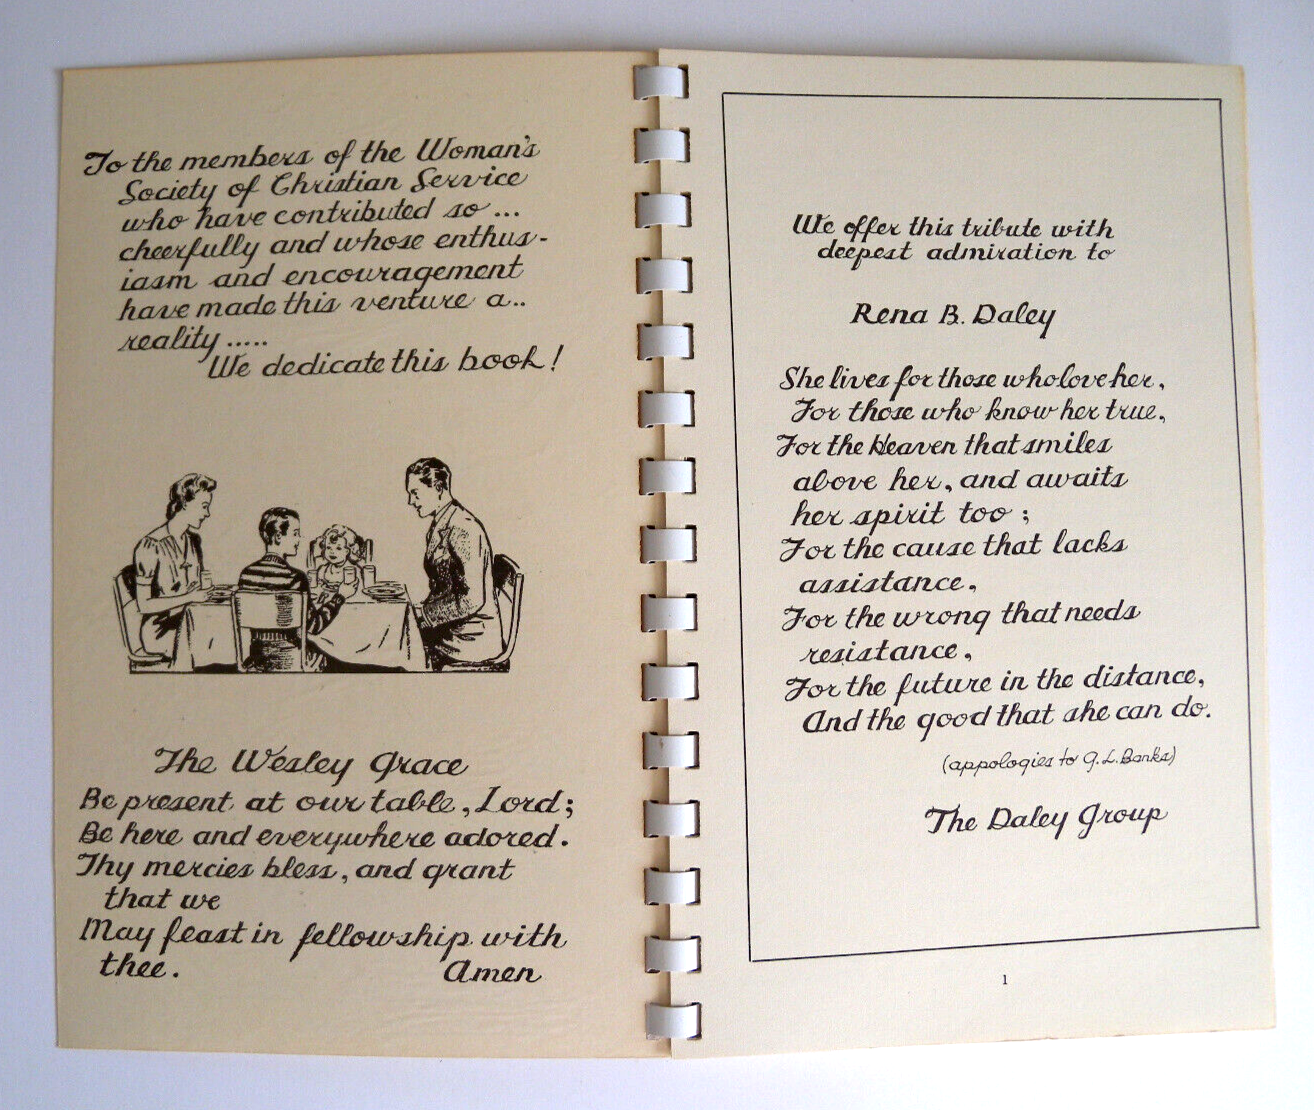 To the members of the Woman's
Society of Christian Service
who have contributed so ...
cheerfully and whose enthus-
iasm and encouragement
have made this venture a..
reality .....
We dedicate this book!
The Wesley Grace
Be present at our table, Lord;
Be here and everywhere adored.
Thy mercies bless, and grant
that we
May feast in fellowship with
thee. Amen
We offer this tribute with
deepest admiration to
Rena B. Daley
She lives for those who love her,
For those who know her true,
For the Heaven that smiles
above her, and awaits
her spirit too;
For the cause that lacks
assistance,
For the wrong that needs
resistance,
For the future in the distance,
And the good that she can do.
(appologies to G.L. Banks)
The Daley Group
1